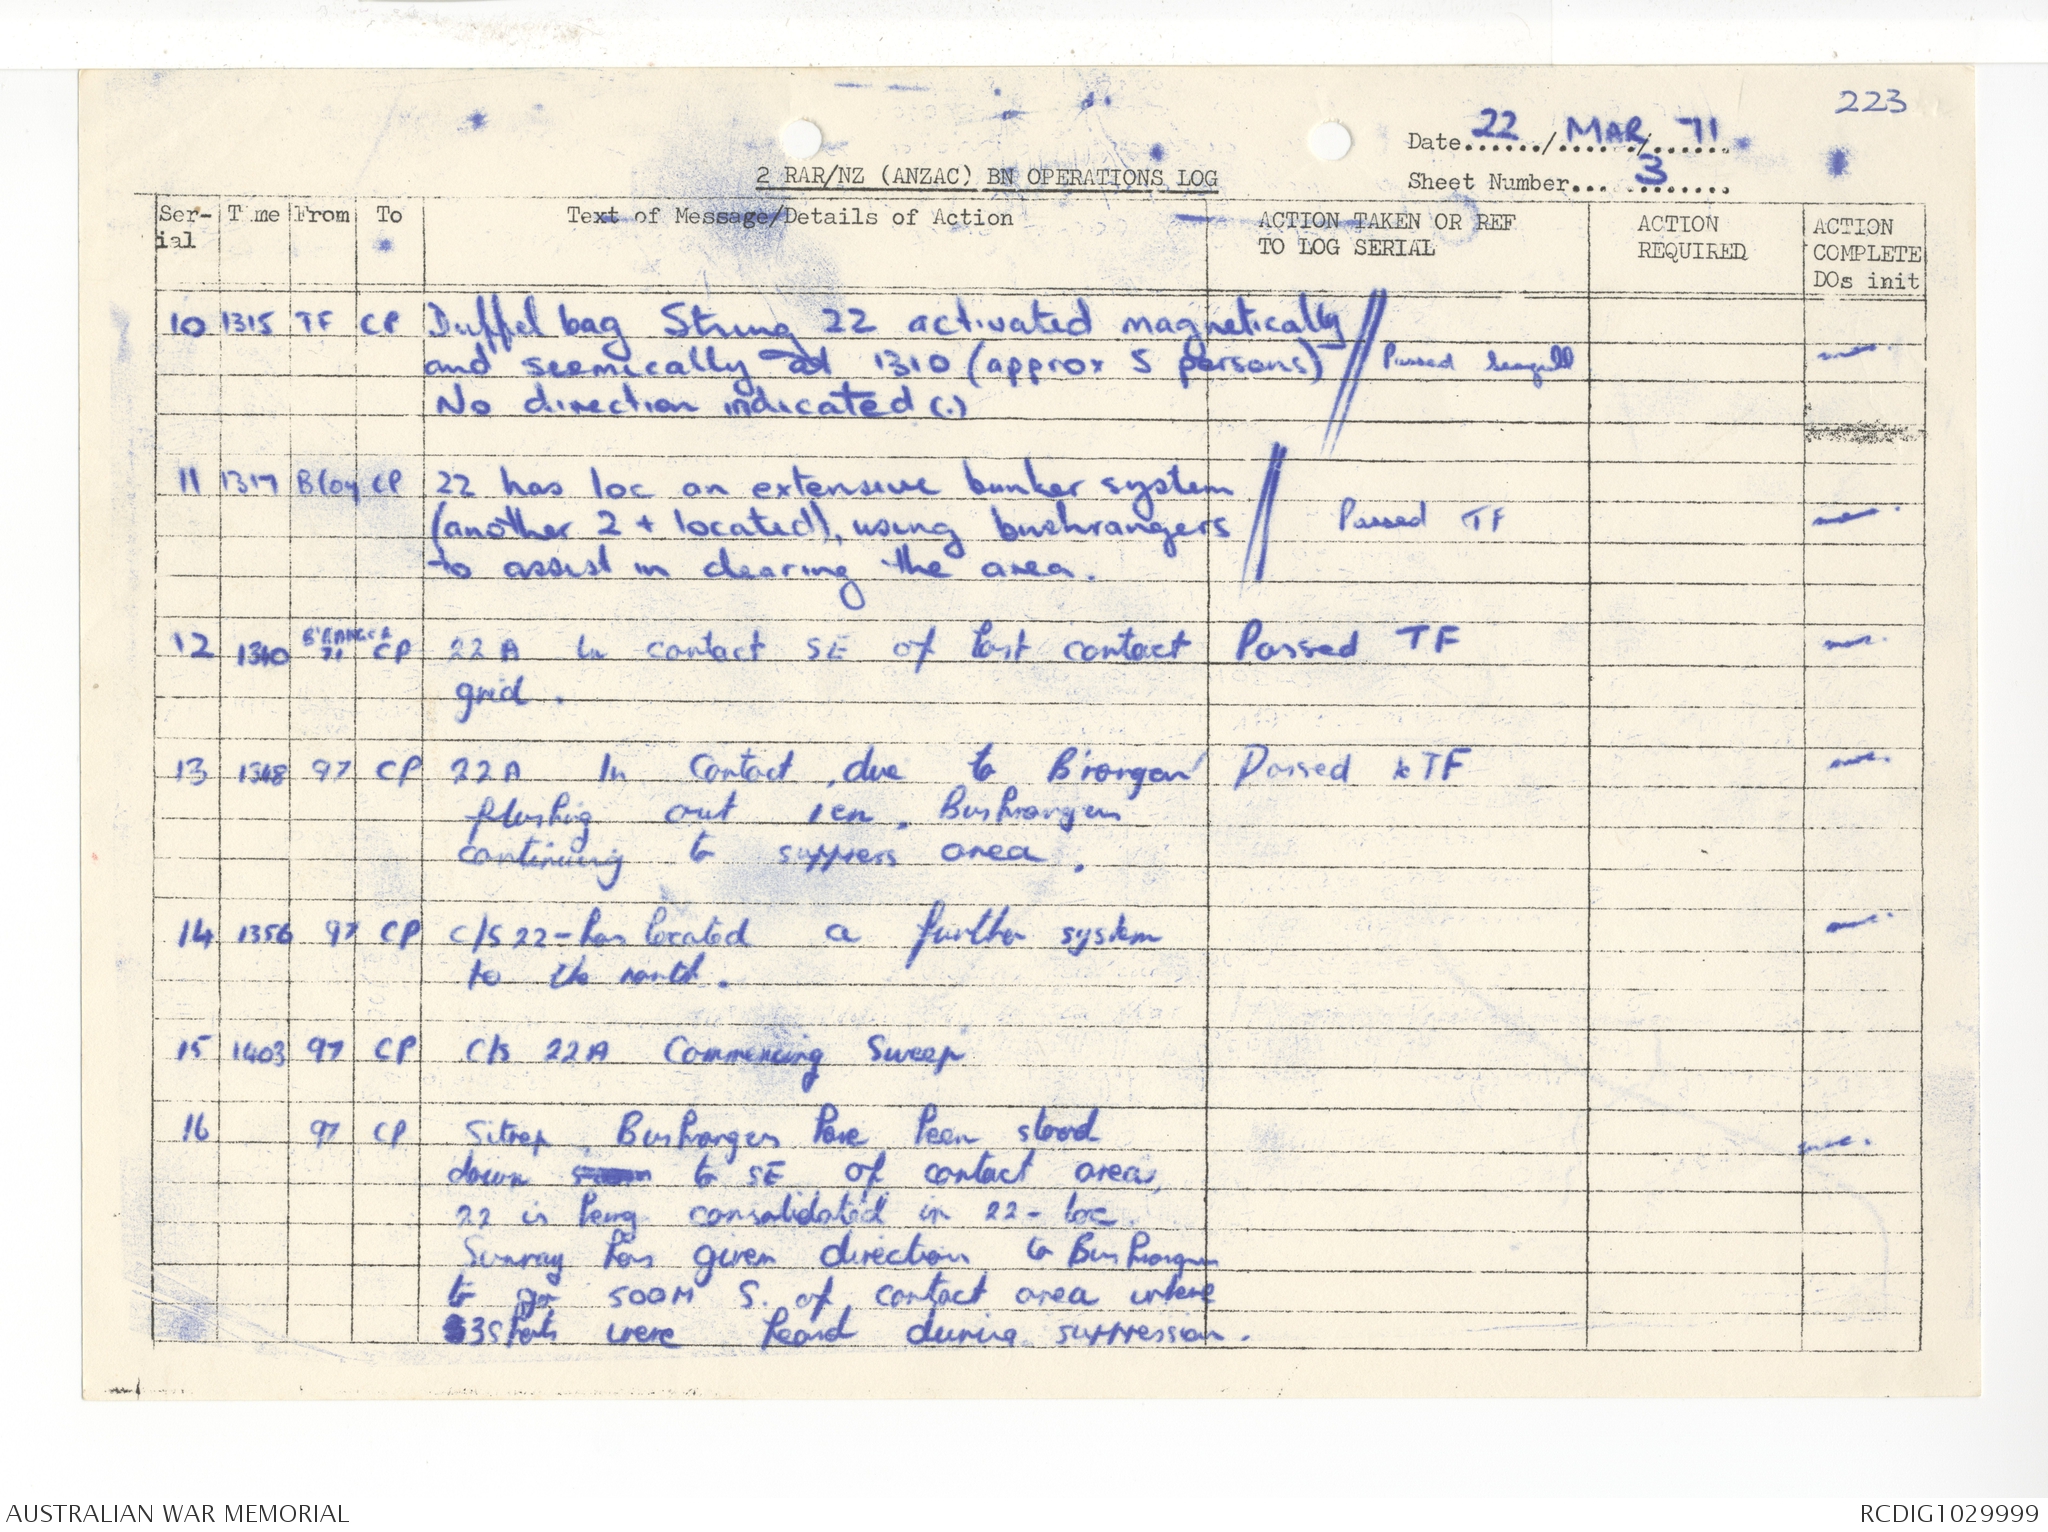 223
Date 22 / MAR / 71
2 RAR/NZ (ANZAC) BN OPERATIONS LOG
Sheet Number 3
Ser-ial Time From To Text of Message/Details of Action ACTION TAKEN OR REF TO LOG SERIAL ACTION REQUIRED ACTION COMPLETE DOs init
10 1315 TF CP Duffel bag String 22 activated magnetically
and seemically at 1310 (approx 5 persons) Passed Seagull
No direction indicated (.)
11 1317 B Coy CP 22 has loc an extensive bunker system
(another 2 + located), using bushrangers Passed TF
to assist in clearing the area.
12 1340 B'RANGER 71 CP 22A In contact SE of last contact Passed TF
grid.
13 1348 97 CP 22A In Contact, due to B'rangers Passed to TF
flushing out 1 en. Bushrangers
continuing to suppress area.
14 1356 97 CP C/S 22- has located a further system
to the north.
15 1403 97 CP C/S 22A Commencing Sweep
16 97 CP Sitrep. Bushrangers have been stood
down to SE of contact area,
22 is being consolidated in 22- loc.
Sunray has given direction to Bushrangers
to go 500M S. of contact area where
3 shots were heard during suppression.
AUSTRALIAN WAR MEMORIAL
RCDIG1029999